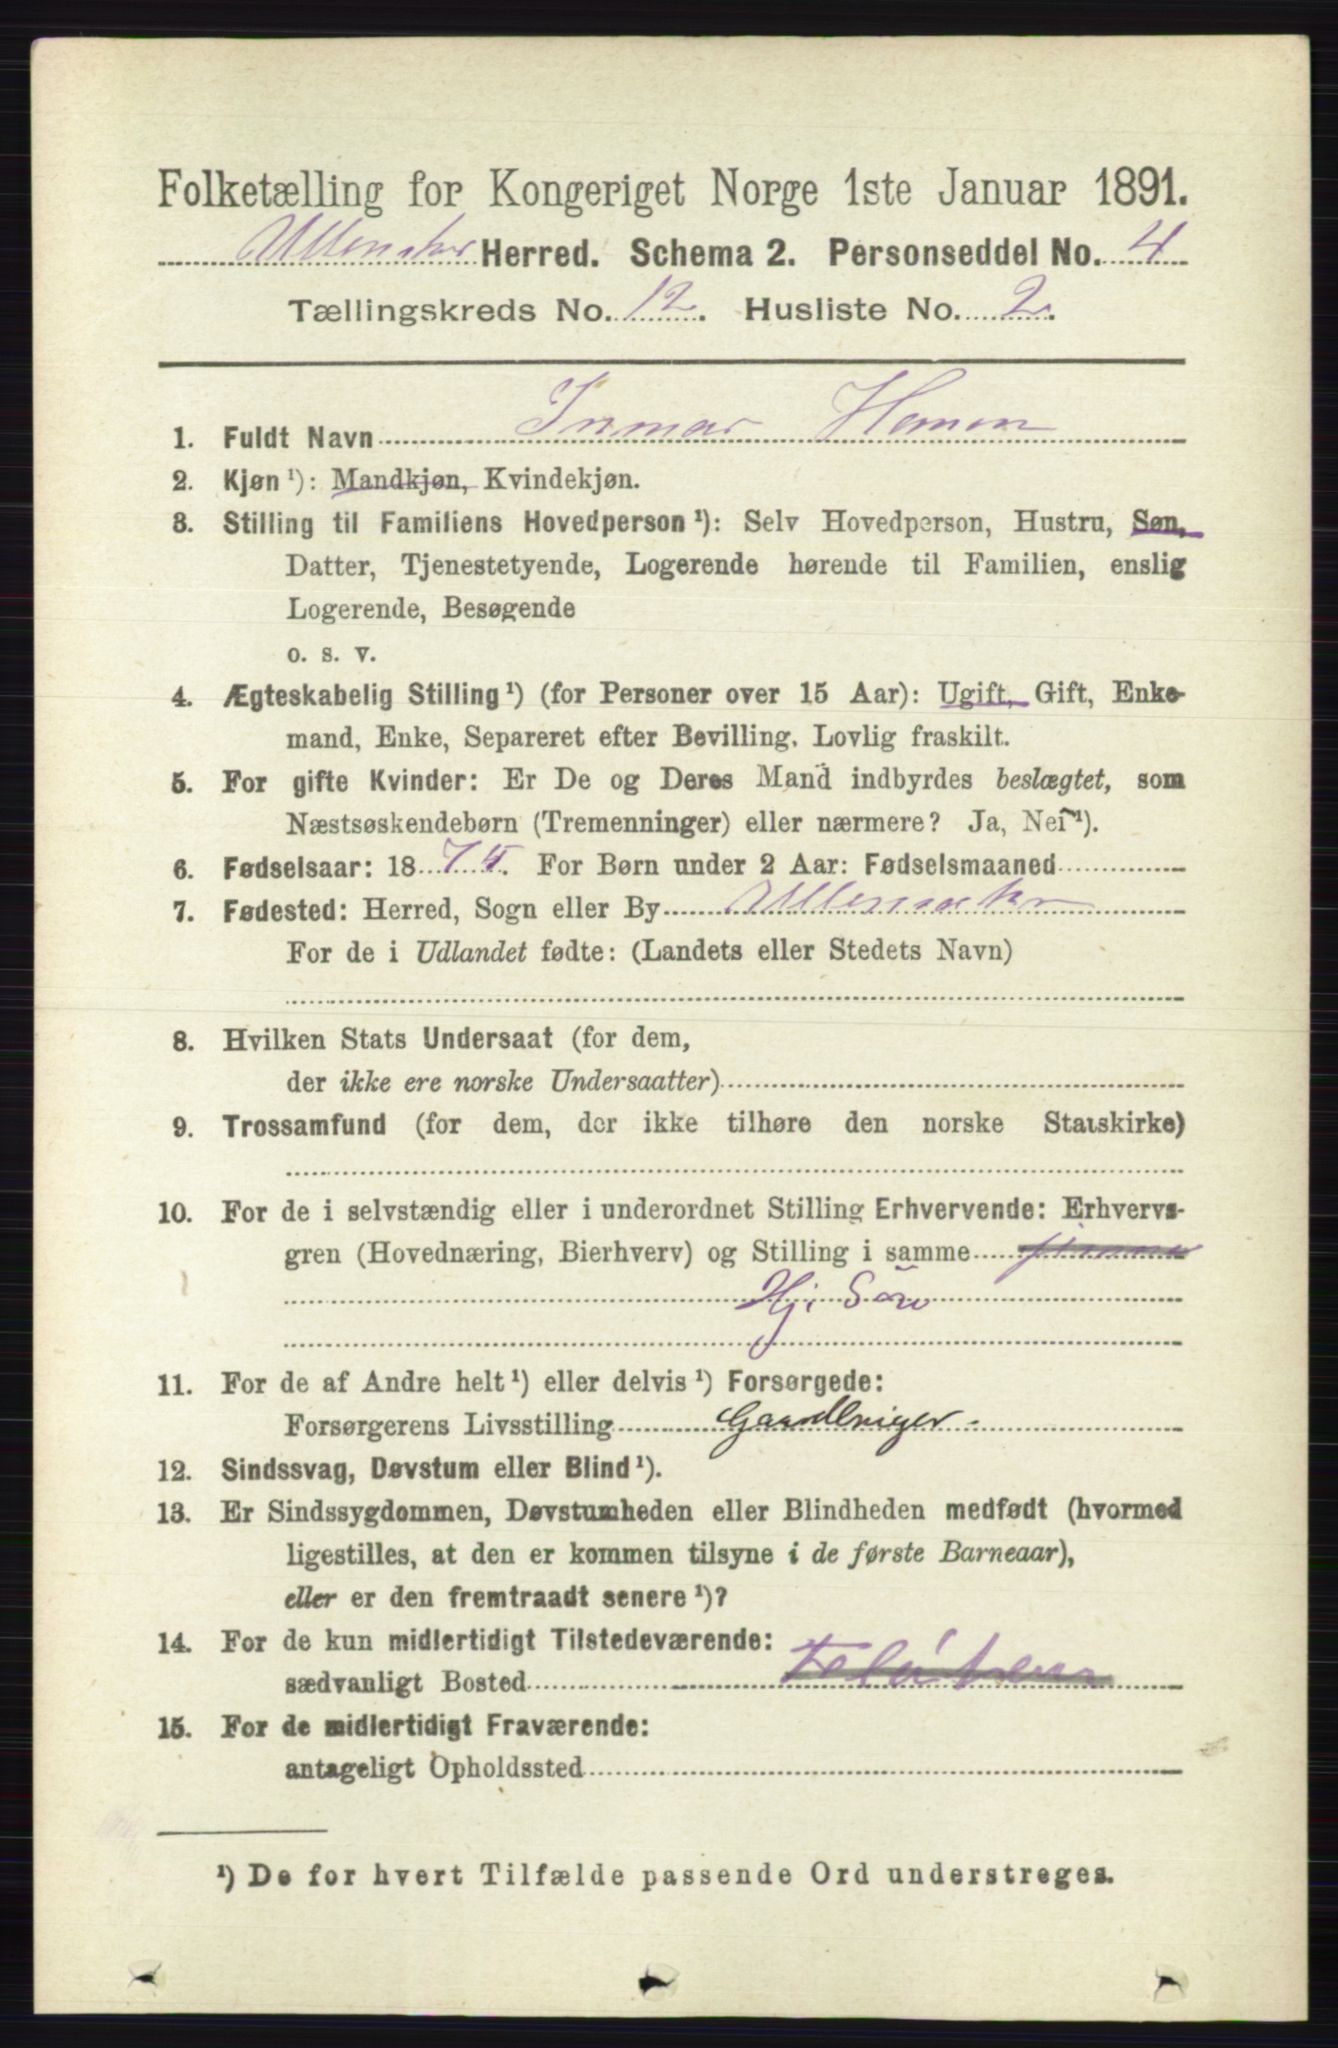 Folketælling for Kongeriget Norge 1ste Januar 1891.
Ullensaker Herred. Schema 2. Personseddel No. 4
Tællingskreds No. 12. Husliste No. 2.
1. Fuldt Navn
2. Kjøn ¹): Mandkjøn, Kvindekjøn.
3. Stilling til Familiens Hovedperson ¹): Selv Hovedperson, Hustru, Søn,
Datter, Tjenestetyende, Logerende hørende til Familien, enslig
Logerende, Besøgende
o. s. v.
4. Ægteskabelig Stilling ¹) (for Personer over 15 Aar): Ugift, Gift, Enke-
mand, Enke, Separeret efter Bevilling. Lovlig fraskilt.
5. For gifte Kvinder: Er De og Deres Mand indbyrdes beslægtet, som
Næstsøskendebørn (Tremenninger) eller nærmere? Ja, Nei ¹).
6. Fødselsaar: 18 For Børn under 2 Aar: Fødselsmaaned
7. Fødested: Herred, Sogn eller By Ullensaker
For de i Udlandet fødte: (Landets eller Stedets Navn)
8. Hvilken Stats Undersaat (for dem,
der ikke ere norske Undersaatter)
9. Trossamfund (for dem, der ikke tilhøre den norske Statskirke)
10. For de i selvstændig eller i underordnet Stilling Erhvervende: Erhvervs-
gren (Hovednæring, Bierhverv) og Stilling i samme
Hj. Søn
11. For de af Andre helt ¹) eller delvis ¹) Forsørgede:
Forsørgerens Livsstilling Gaardbruger.
12. Sindssvag, Døvstum eller Blind ¹).
13. Er Sindssygdommen, Døvstumheden eller Blindheden medfødt (hvormed
ligestilles, at den er kommen tilsyne i de første Barneaar),
eller er den fremtraadt senere ¹)?
14. For de kun midlertidigt Tilstedeværende:
sædvanligt Bosted
15. For de midlertidigt Fraværende:
antageligt Opholdssted
¹) De for hvert Tilfælde passende Ord understreges.